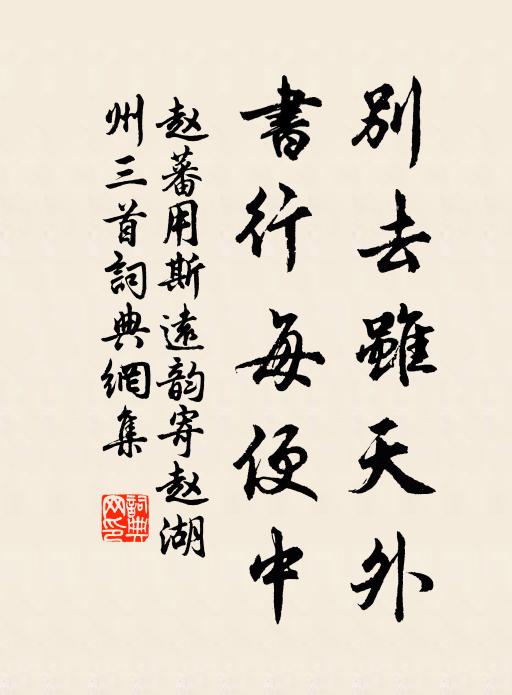 別去雖天外
書行每便中
赵蕃用斯遠韵寄赵湖
州三首詞典網集
詞典
网印